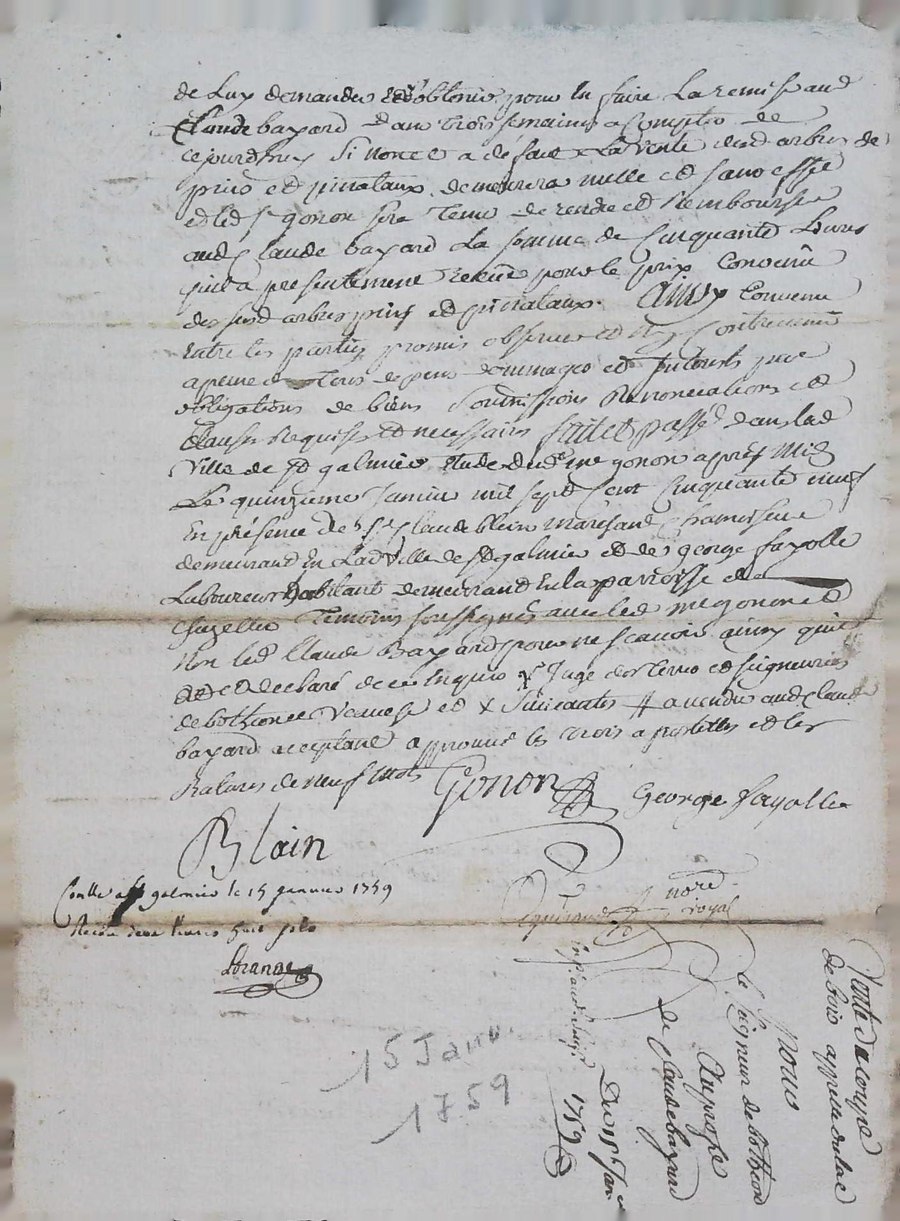 de Luy demander et obtenir pour en faire La remise aud
Claude bayard dans trois semaines a Compter de
cejourdhuy Si non et a defaut La vente desd arbres de
pins et pinataux demeurera nulle et sans effet
et led Sr gonon sera tenu de rendre et Rembourser
aud Claude bayard La somme de Cinquante Livres
quil a presentement Receue pour le prix Convenu
desusd arbres pins et pinataux. Ainsy Convenu
Entre les parties promis observer et Contrevenir
a peine de tous depens dommages et Interests par
obligations de biens Soumissions Renonciations et
Clauses Requises et necessaires fait et passé dans lad
Ville de St galmier Etude dud me gonon apres Midy
Le quinzieme Janvier mil sept Cent Cinquante neuf
En présence de Sr Claude blein marchand Chamoiseur
demeurant En Lad Ville de St galmier et de george fayolle
Laboureur habitant demeurant En la parroisse de
Chazelles Temoins soussignés avec led me gonon et
Non led Claude Bayard pour ne scavoir ainsy quil
a declaré de ce Enquis x Juge des terres et seigneuries
de botheon et x Suivantes # a vendu aud Claude
bayard acceptant approuvé les trois apostilles et les
Ratures de neuf mots
Gonon George fayolle
Blain
Conllé a St galmier le 15 janvier 1759
Receu douze sols
nore
royal
Vente de coupe
de bois appellé dulac
Nous
Le Seigneur de botheon
Au profit
de Claude bayard
Du 15e Janer
1759
15 Janv.
1759